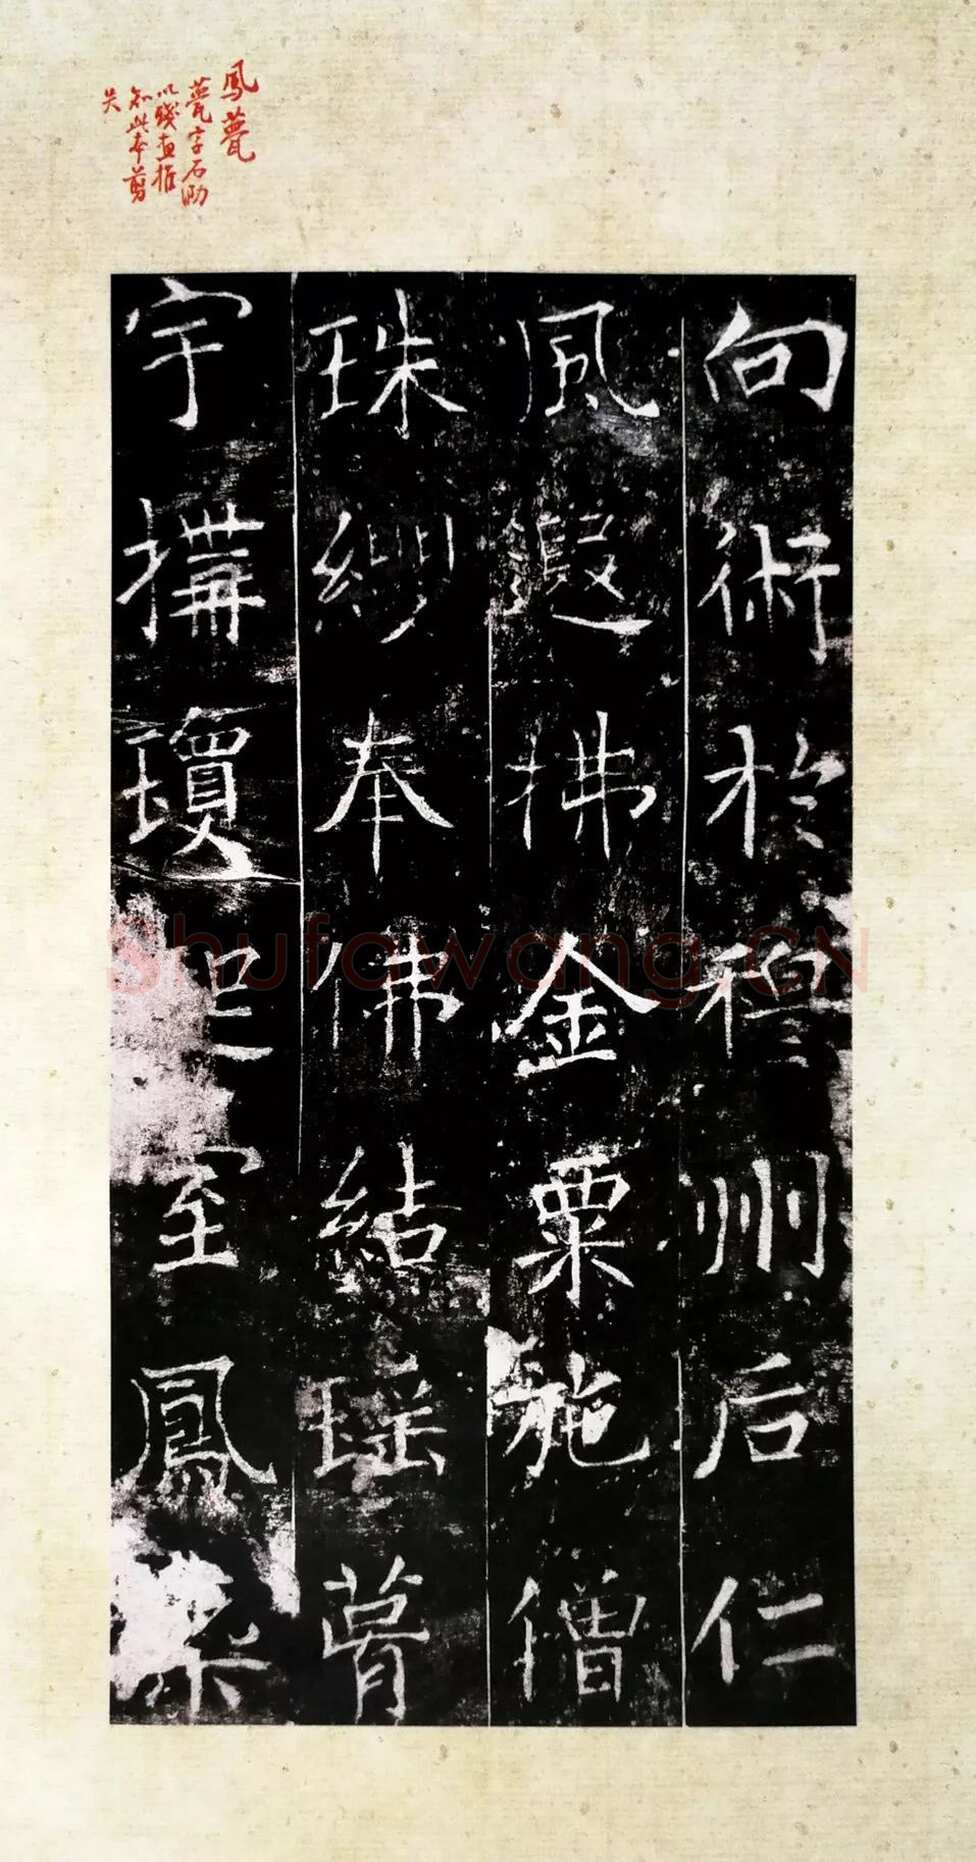 鳳甍
甍字石泐
以殘画推
知此本剪
失
向術於穆州后仁
風遐拂金粟施僧
珠奉佛結瑶
宇搆瓊室鳳
Shufawang.CN